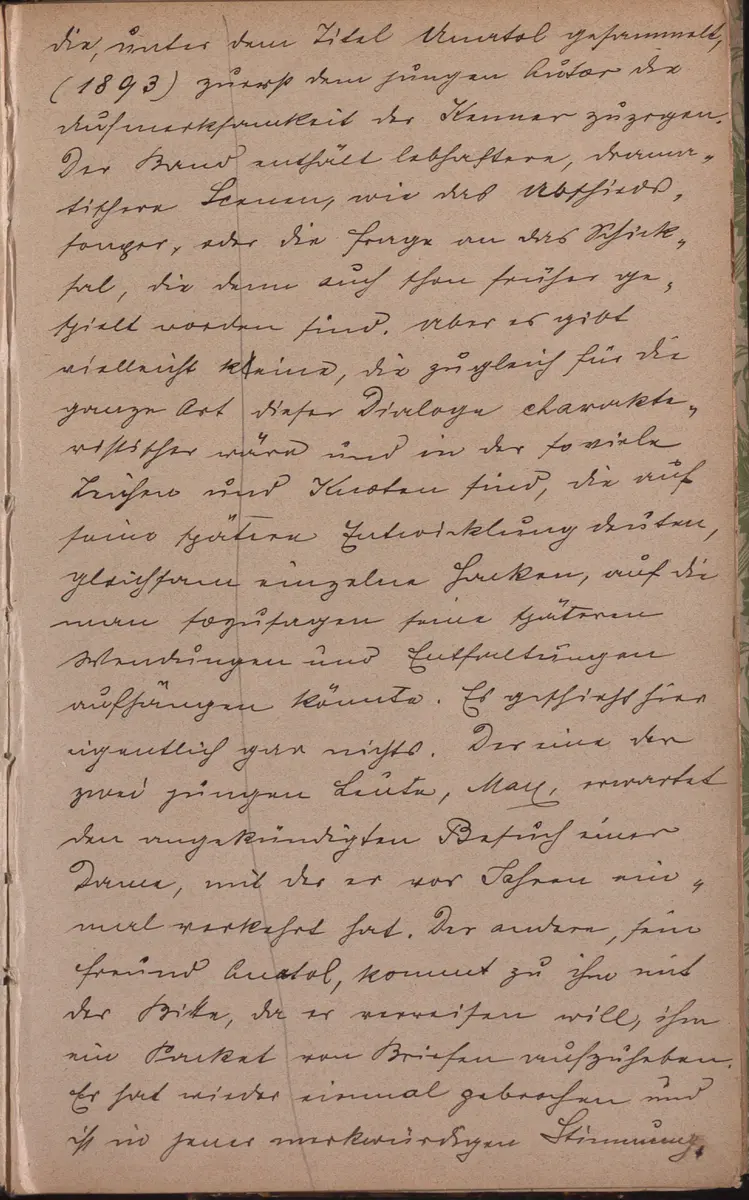 die, unter dem Titel Anatol gesammelt,
(1893) zuerst dem jungen Autor die
Aufmerksamkeit der Kenner zuzogen.
Der Band enthält lebhaftere, drama-
tischere Scenen, wie das Abschieds-
souper, oder die Frage an das Schick-
sal, die denn auch schon früher ge-
spielt worden sind. Aber es gibt
vielleicht keine, die zugleich für die
ganze Art dieser Dialoge charakte-
ristischer wäre und in der so viele
Zeichen und Knoten sind, die auf
seine spätere Entwicklung deuten,
gleichsam einzelne Hacken, auf die
man sozusagen seine späteren
Wendungen und Entfaltungen
aufhängen könnte. Es geschieht hier
eigentlich gar nichts. Der eine der
zwei jungen Leute, Max, erwartet
den angekündigten Besuch einer
Dame, mit der er vor Jahren ein-
mal verkehrt hat. Der andere, sein
Freund Anatol, kommt zu ihm mit
der Bitte, da er verreisen will, ihm
ein Packet von Briefen aufzuheben.
Er hat wieder einmal gebrochen und
ist in jener merkwürdigen Stimmung,